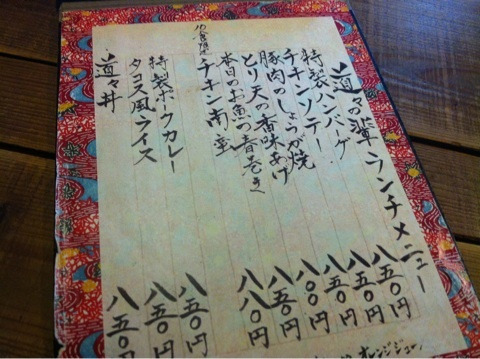 道々の輩 ランチメニュー
特製ハンバーグ 八五〇円
チキンソテー 八五〇円
豚肉のしょうが焼 八五〇円
とり天の香味あげ 八〇〇円
本日のお魚の春巻き 八五〇円
チキン南蛮 八八〇円
特製ポークカレー 八五〇円
タコス風ライス 八五〇円
道々丼 八五〇円
オレンジジュー